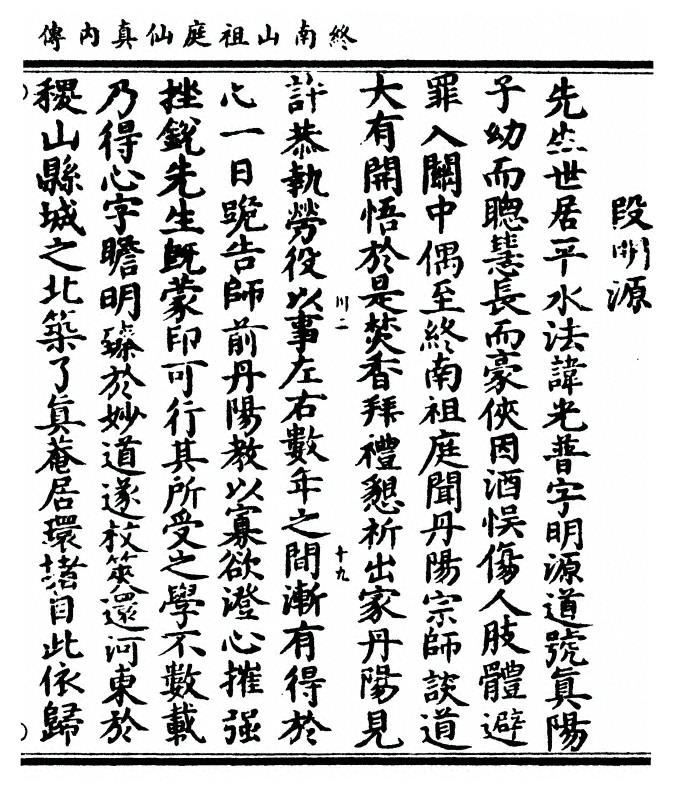 終南山祖庭仙真內傳
段明源
先生世居平水法諱光普字明源道號眞陽
子幼而聰慧長而豪俠因酒悞傷人肢體避
罪入關中偶至終南祖庭聞丹陽宗師談道
大有開悟於是焚香拜禮懇祈出家丹陽見
川二
十九
許恭執勞役以事左右數年之間漸有得於
心一日跪告師前丹陽教以寡欲澄心摧强
挫銳先生旣蒙印可行其所受之學不數載
乃得心字瞻明臻於妙道遂杖策還河東於
稷山縣城之北築了眞菴居環堵自此依歸